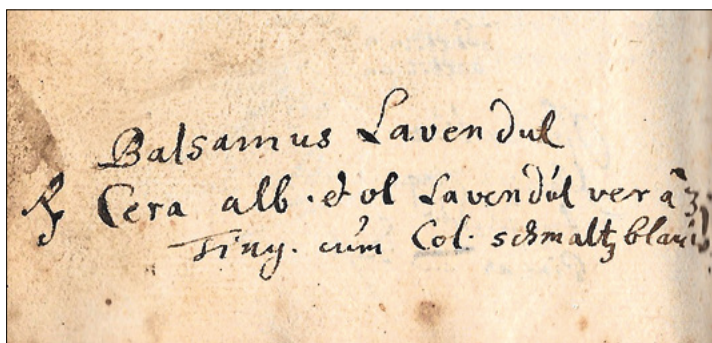 Balsamus Lavendul
℞ Cera alb. et ol Lavendul ver a ʒ
Ting. cum Col. schmaltz blau